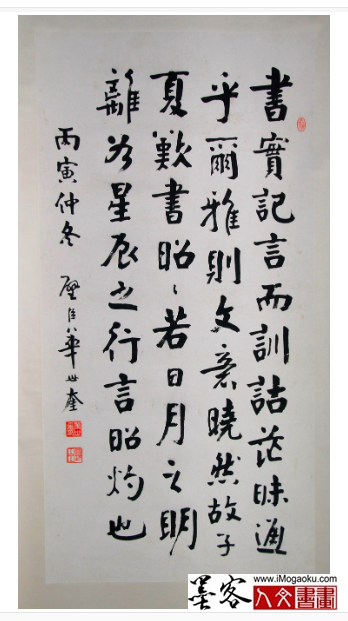 書實記言而訓詁茫昧通
乎爾雅則文意曉然故子
夏歎書昭〻若日月之明
離星辰之行言昭灼也
丙寅仲冬 華世奎
墨客
www.iMogaoku.com
人文書畫